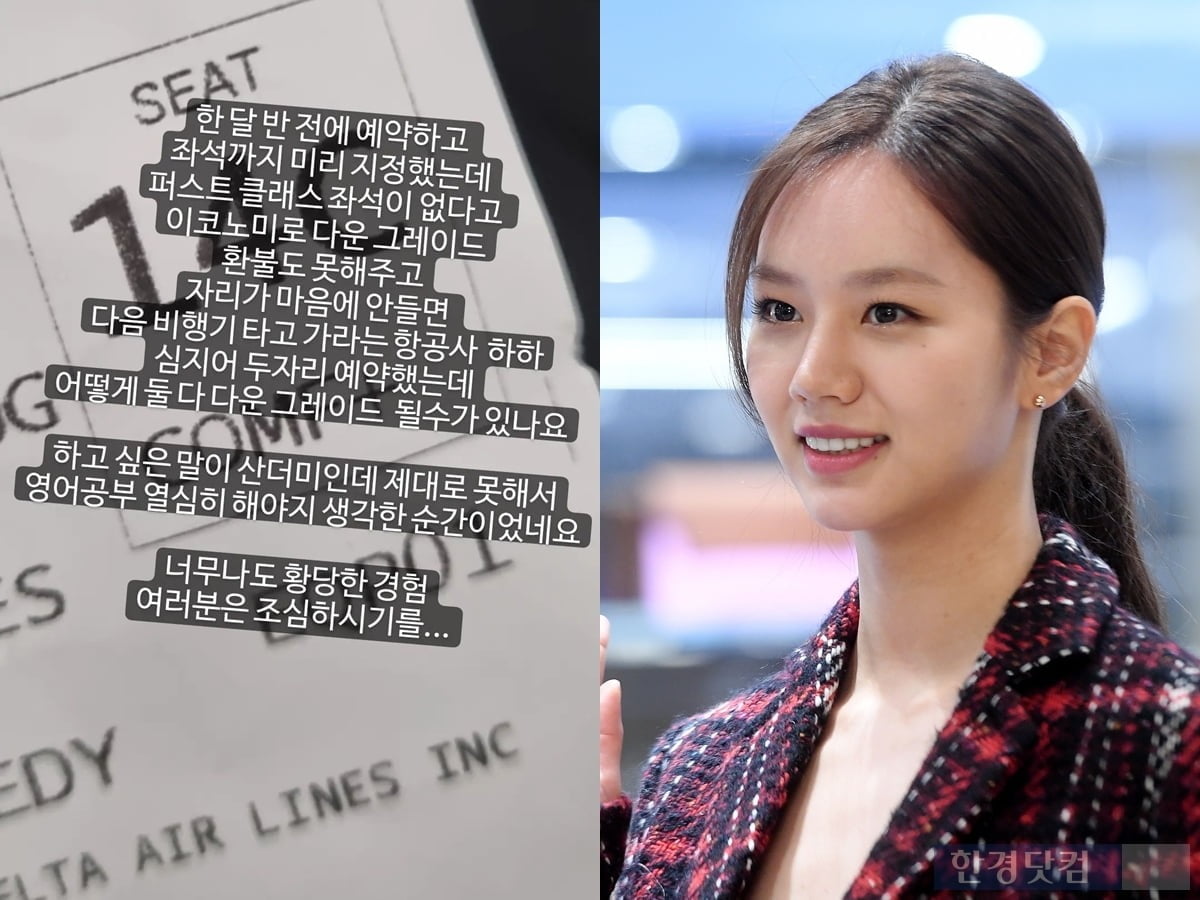 SEAT
한 달 반 전에 예약하고
좌석까지 미리 지정했는데
퍼스트 클래스 좌석이 없다고
이코노미로 다운 그레이드
환불도 못해주고
자리가 마음에 안들면
다음 비행기 타고 가라는 항공사 하하
심지어 두자리 예약했는데
어떻게 둘 다 다운 그레이드 될수가 있나요
하고 싶은 말이 산더미인데 제대로 못해서
영어공부 열심히 해야지 생각한 순간이었네요
너무나도 황당한 경험
여러분은 조심하시기를...
EDY
ELTA AIR LINES INC
한경닷컴